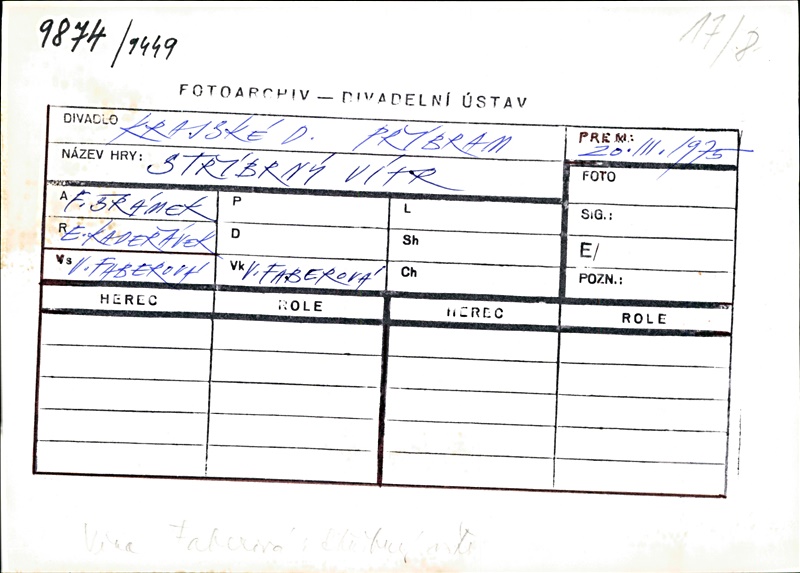 9874/9449
17/8
FOTOARCHIV — DIVADELNÍ ÚSTAV
DIVADLO KRAJSKÉ D. PŘÍBRAM
PREM.: 20.III.1975
NÁZEV HRY: STŘÍBRNÝ VÍTR
FOTO
A F. ŠRÁMEK
P
L
SIG.:
R E. KADEŘÁVEK
D
Sh
E/
Vs V. FABEROVÁ
Vk V. FABEROVÁ
Ch
POZN.:
HEREC ROLE HEREC ROLE
Věra Faberová: Stříbrný vítr